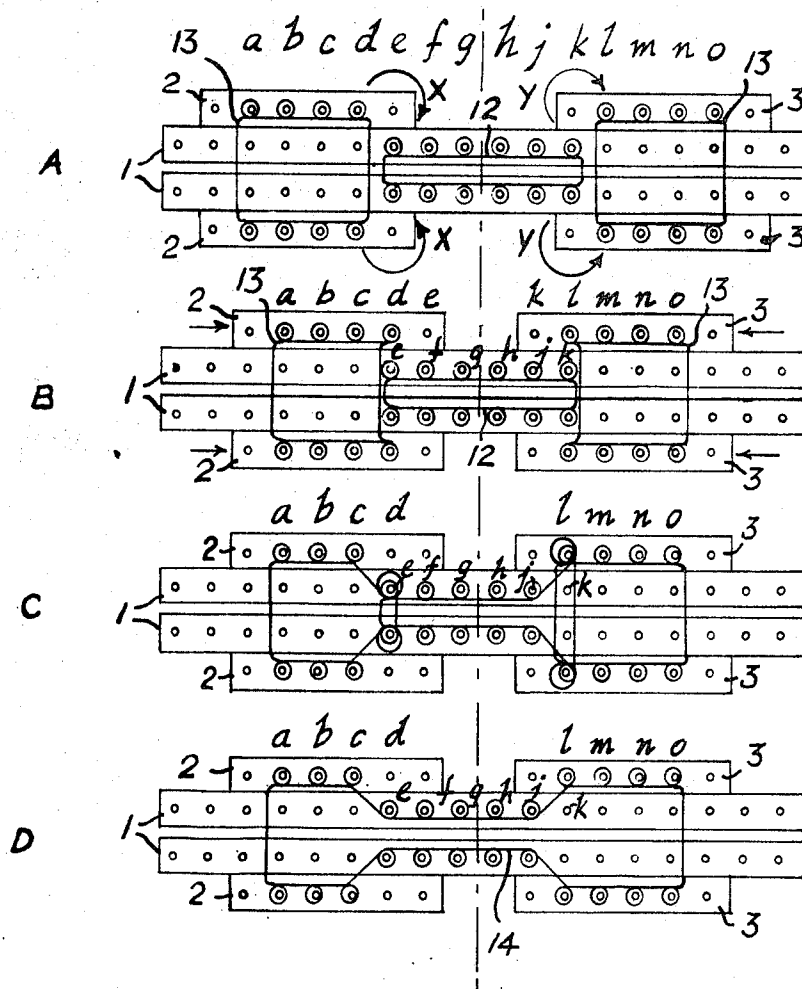 13 a b c d e f g h j k l m n o 13
2 X 12 Y 3
A 1
2 X Y 3
2 13 a b c d e k l m n o 13 3
e f g h j k
B 1
2 12 3
a b c d l m n o 3
2 e f g h j k
C 1
2 3
a b c d l m n o
2 e f g h j k 3
D 1
2 14 3